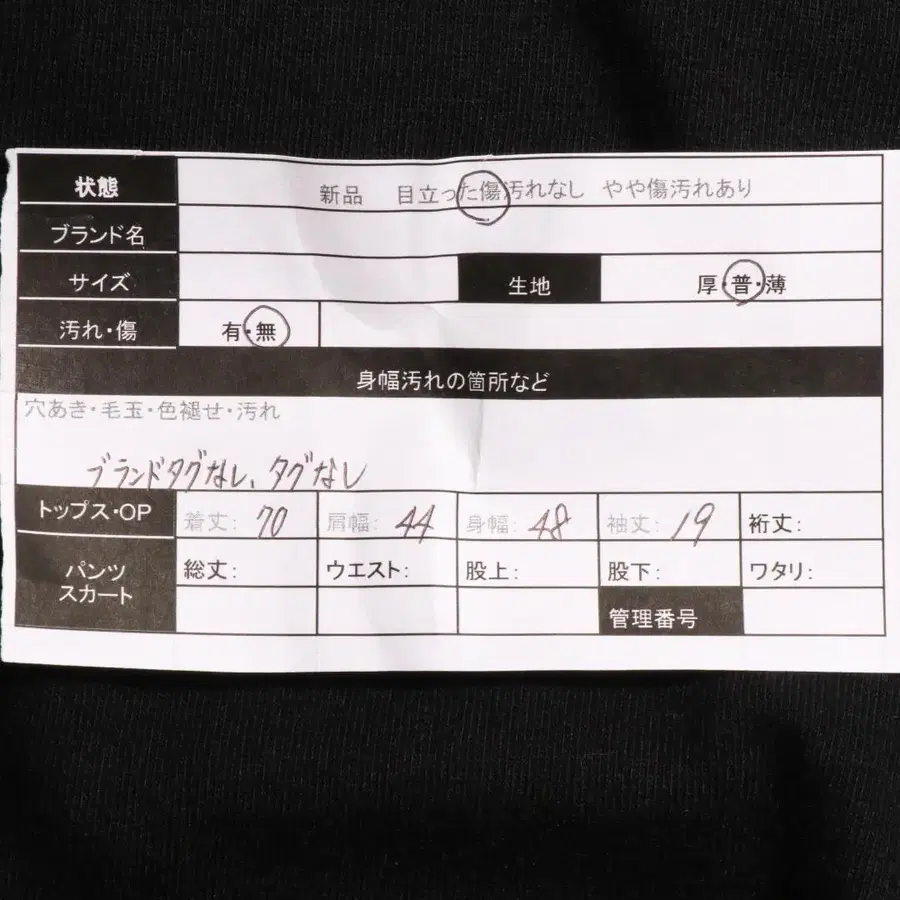 状態 新品 目立った傷汚れなし やや傷汚れあり
ブランド名
サイズ 生地 厚・普・薄
汚れ・傷 有・無
身幅汚れの箇所など
穴あき・毛玉・色褪せ・汚れ
ブランドタグなし、タグなし
トップス・OP 着丈: 70 肩幅: 44 身幅: 48 袖丈: 19 裄丈:
パンツ 総丈: ウエスト: 股上: 股下: ワタリ:
スカート
管理番号